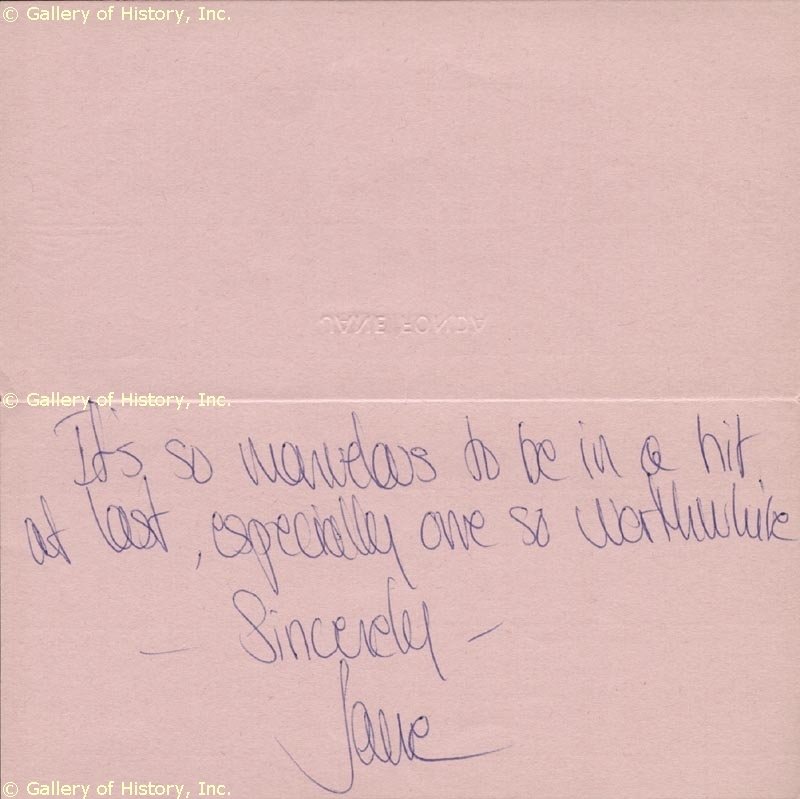 © Gallery of History, Inc.
JANE FONDA
© Gallery of History, Inc.
It's so marvelous to be in a hit
at last, especially one so worthwhile
- Sincerely -
Jane
© Gallery of History, Inc.